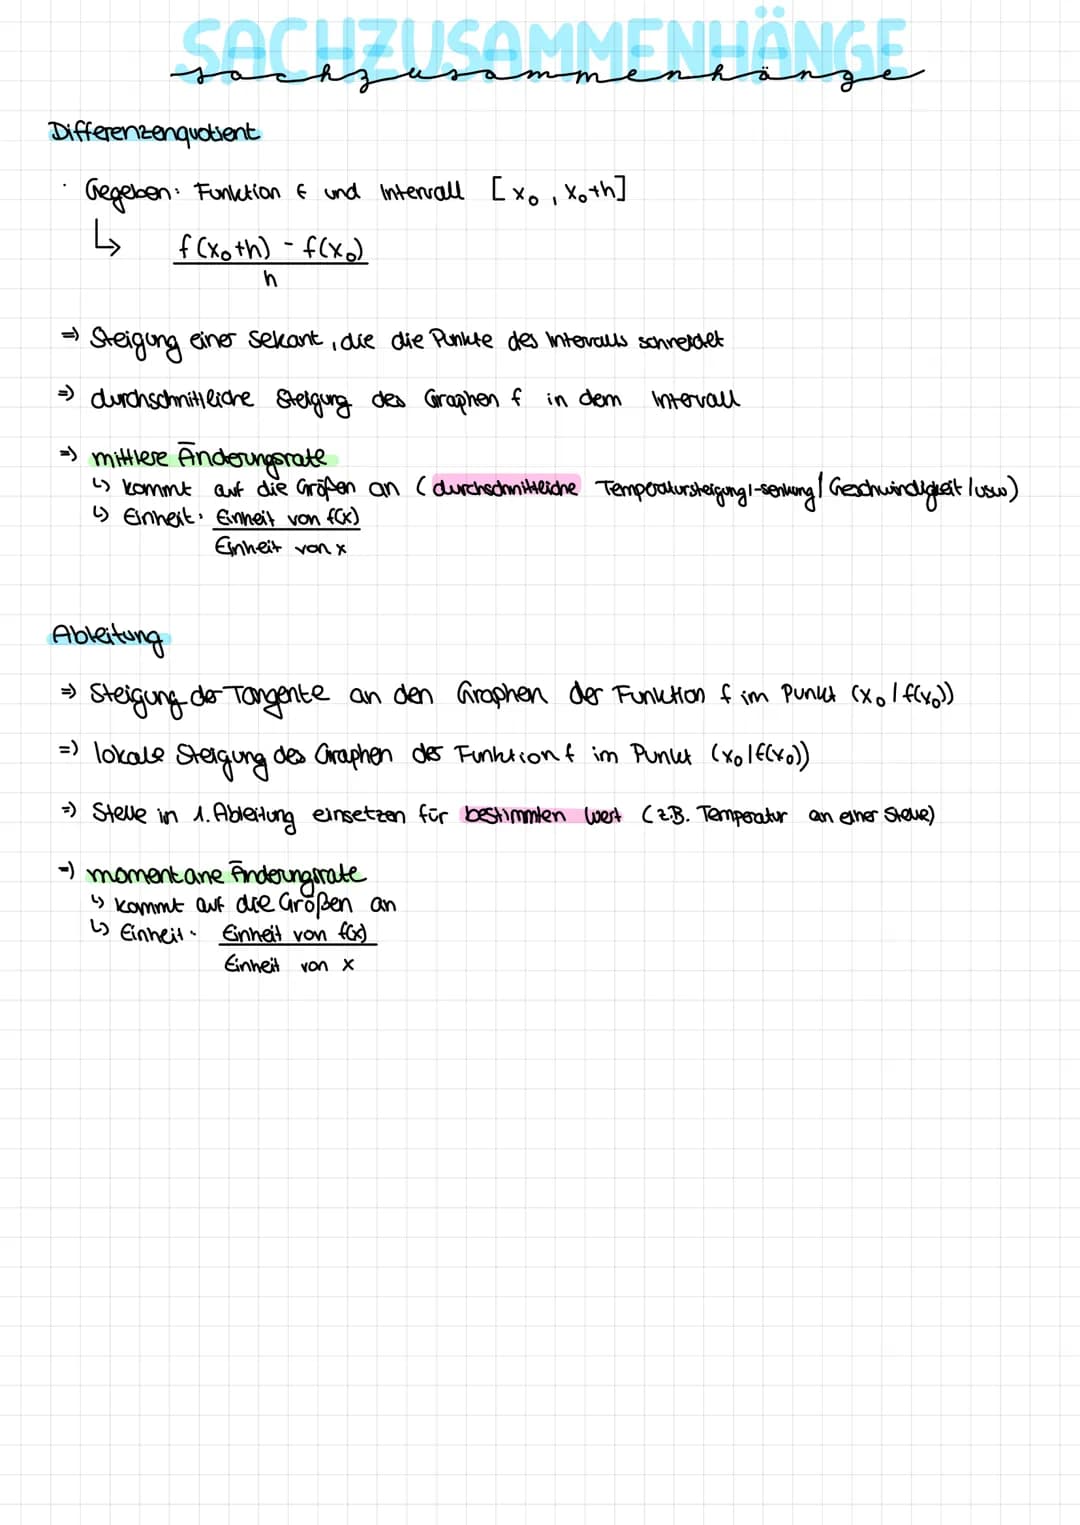 SACHZUSAMMENHÄNGE
sachzusammenhänge
Differenzenquotient
· Gegeben: Funktion f und Intervall [x₀, x₀+h]
↳ f(x₀+h) - f(x₀)
h
=) Steigung einer Sekant, die die Punkte des Intervalls schneidet
=) durchschnittliche Steigung des Graphen f in dem Intervall
=) mittlere Änderungsrate
↳ kommt auf die Größen an (durchschnittliche Temperatursteigung/-senkung/ Geschwindigkeit/usw)
↳ Einheit: Einheit von f(x)
Einheit von x
Ableitung
=) Steigung der Tangente an den Graphen der Funktion f im Punkt (x₀/f(x₀))
=) lokale Steigung des Graphen der Funktion f im Punkt (x₀/f(x₀))
=) Stelle in 1. Ableitung einsetzen für bestimmten Wert (z.B. Temperatur an einer Stelle)
=) momentane Änderungsrate
↳ kommt auf die Größen an
↳ Einheit: Einheit von f(x)
Einheit von x